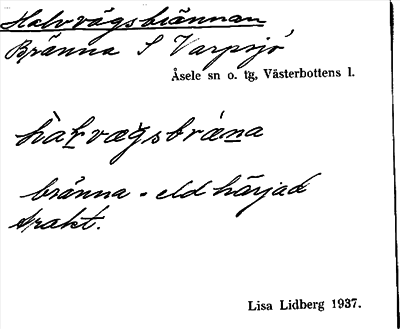 Halvvägsbrännan
Bränna S Varpsjö
Åsele sn o. tg, Västerbottens l.
bränna = eldhärjad
trakt.
Lisa Lidberg 1937.